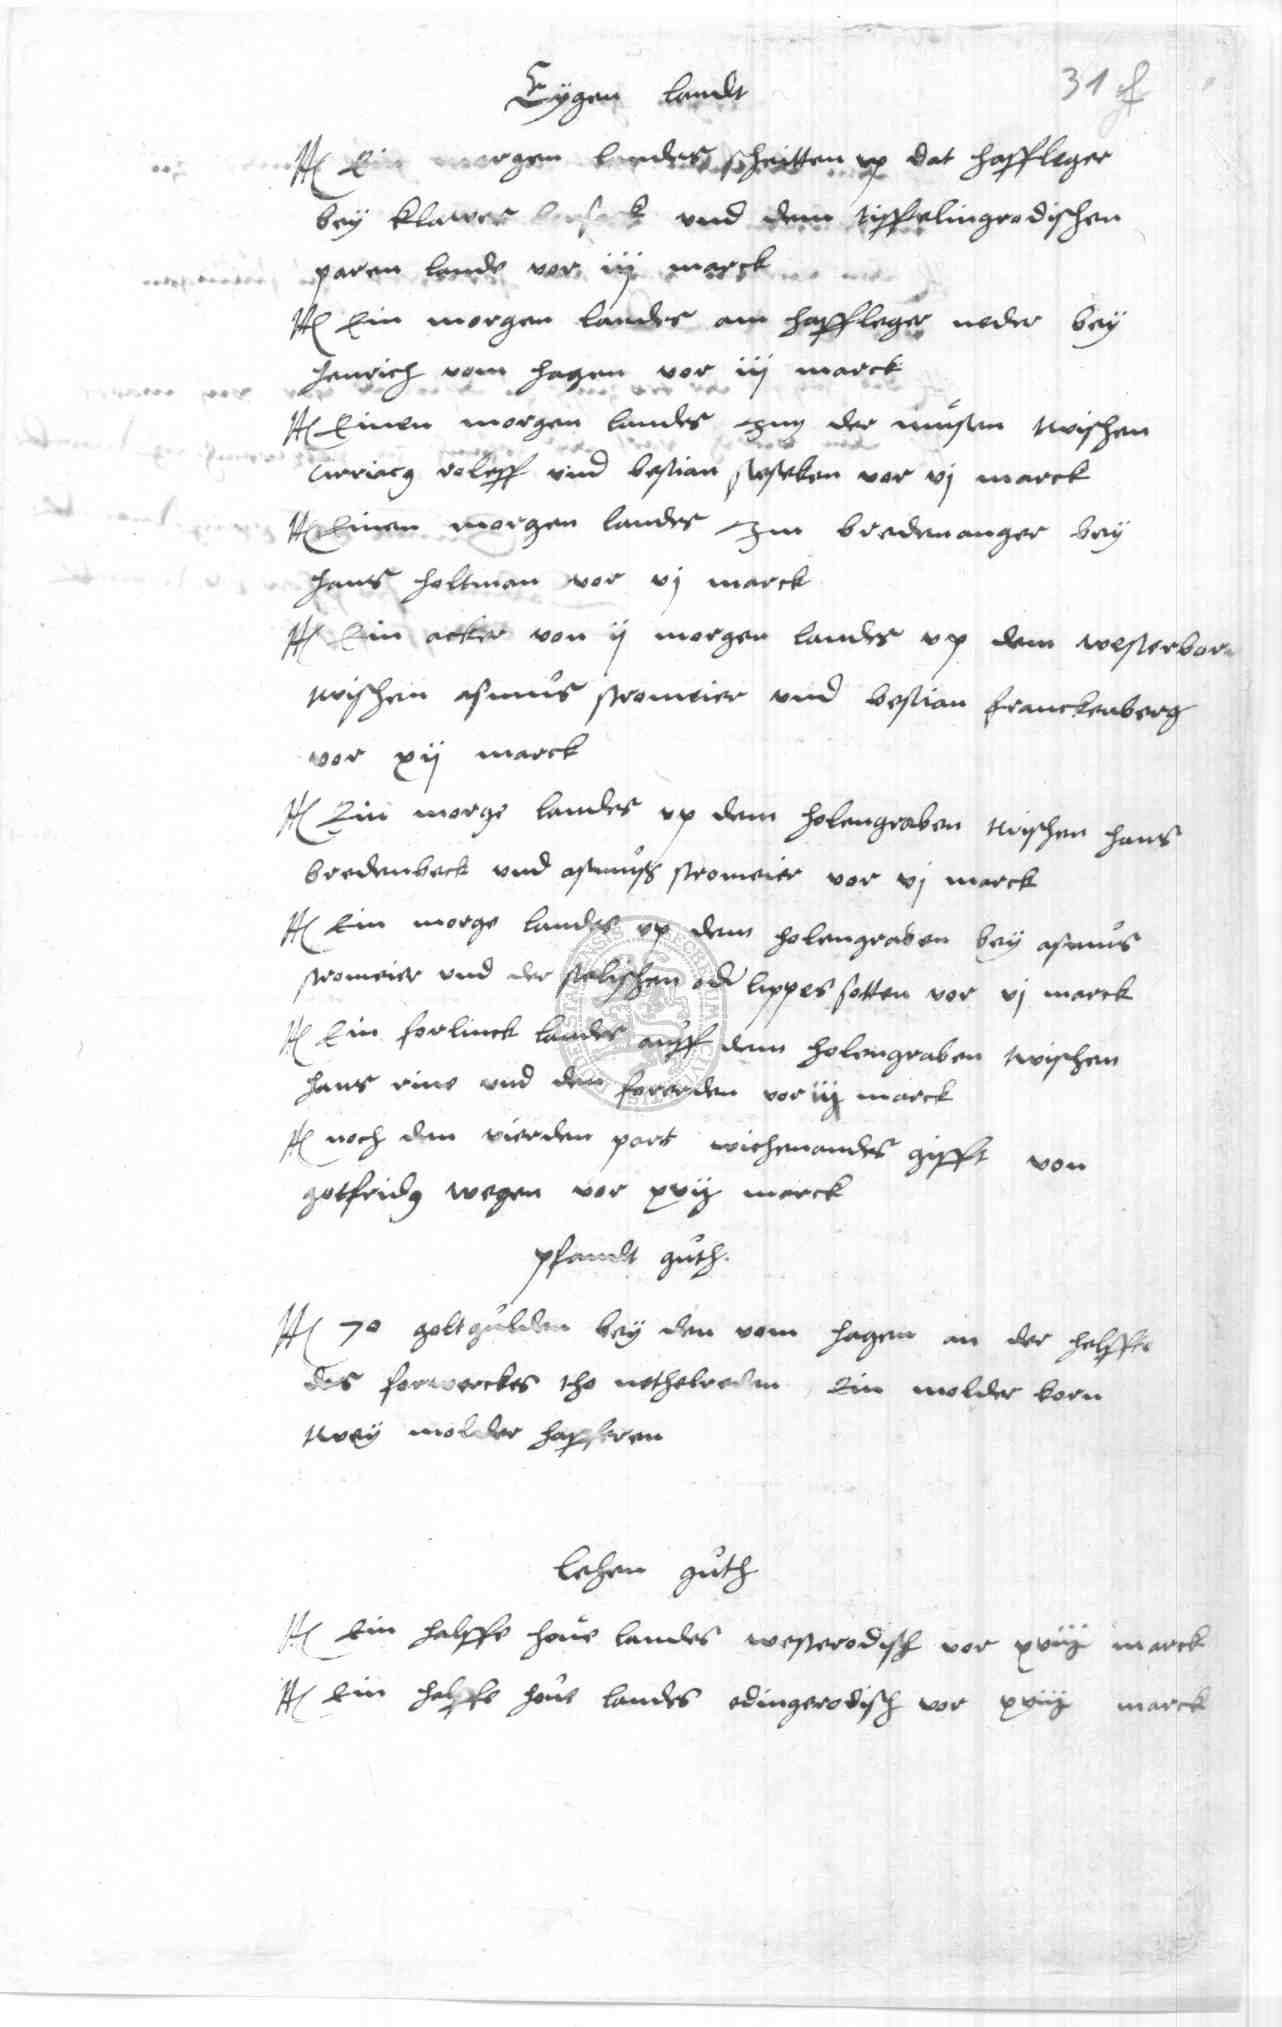 Eygen landt
31
Ein morgen landes scheitten vp dat haffleger
bey klawes und dem tifflingrodischen
paren lande vor iij marck
Ein morgen landes am haffleger neder bey
henrich vom hagen vor iij marck
Einen morgen landes der twischen
Ciriacus roleff und bestian vor vj marck
Einen morgen landes im bredenanger bey
hans holtman vor vj marck
Ein acker von ij morgen landes vp dem westerborn
twischem asmus stromeier und bestian franckenberg
vor xij marck
Ein morge landes vp dem holengraben twischen hans
bredenbeck und asmuss stromeier vor vj marck
Ein morge landes vp dem holengraben bey asmus
stromeier und der oder lippes vor vj marck
Ein forlinck landes auff dem holengraben twischen
hans rine und den vor iij marck
noch den vierden part gifft von
gotfridus wegen vor marck
pfandt guth.
70 goltgulden bey den vom hagen an der helffte
des forwerckes tho nethelreden Ein molder korn
twey molder hafferen
lehen guth
Ein halffe houe landes westerodisch vor xviij marck
Ein halffe houe landes edingerodisch vor xviij marck